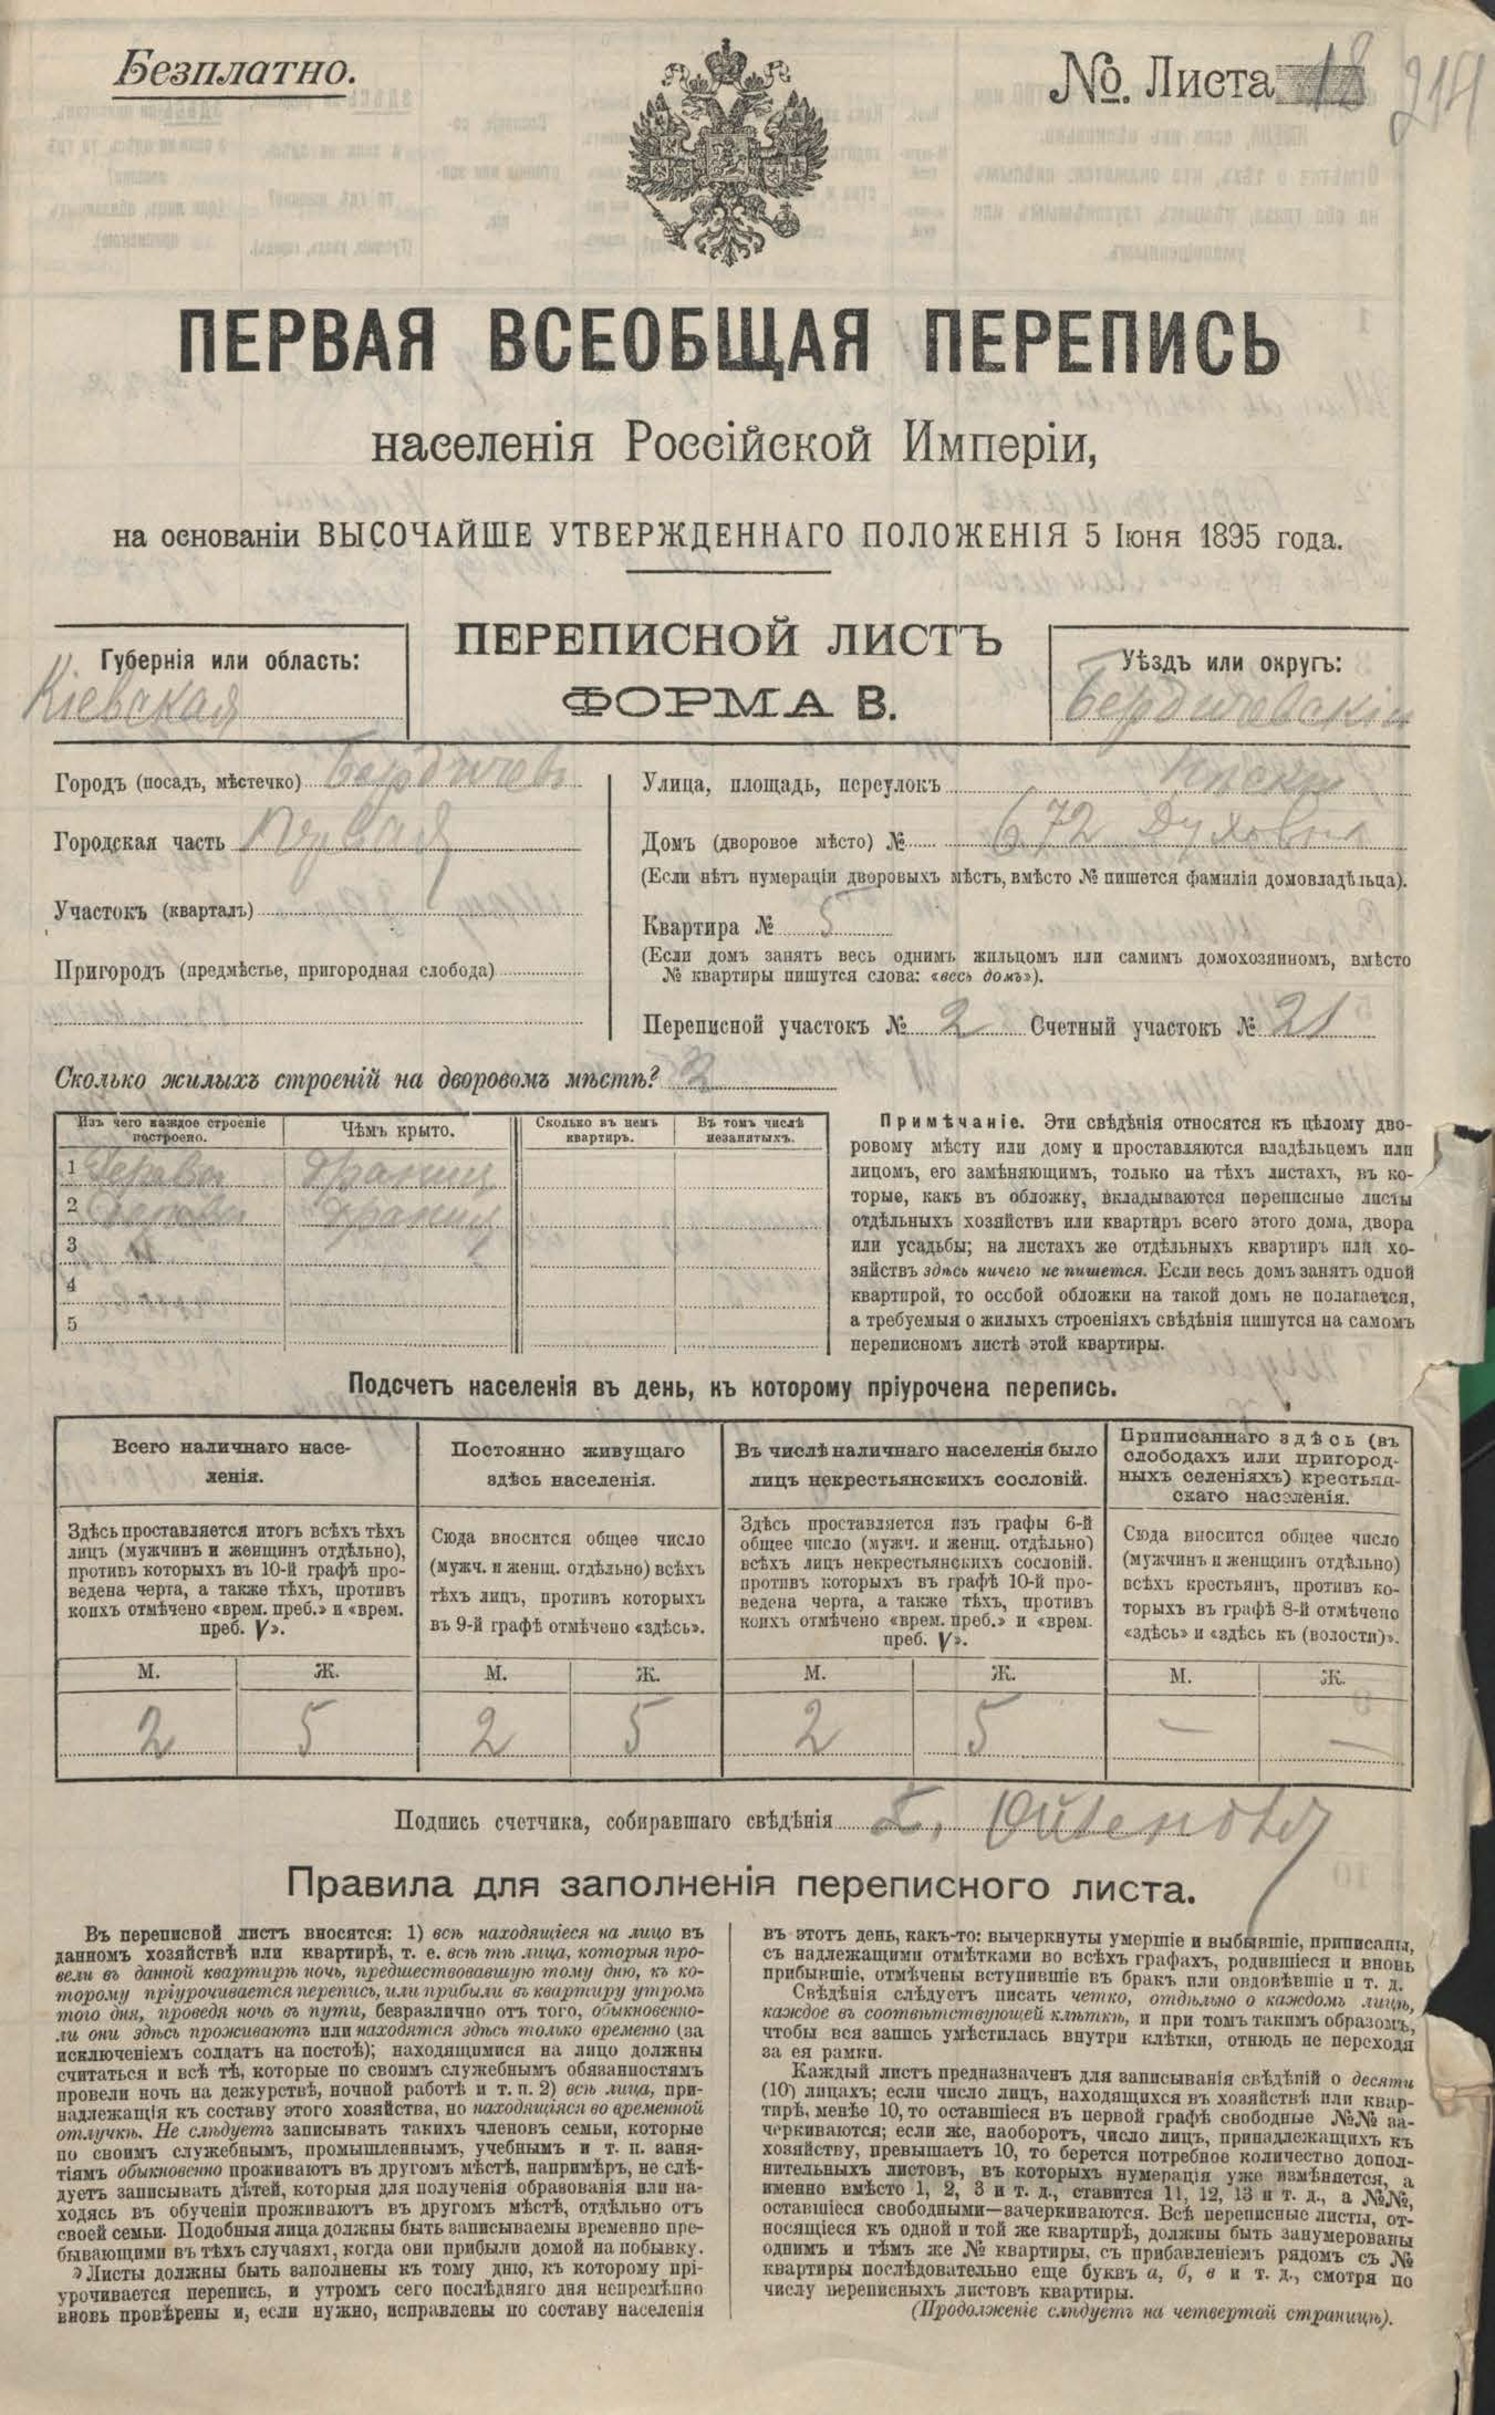 Безплатно.
№. Листа 18 214
ПЕРВАЯ ВСЕОБЩАЯ ПЕРЕПИСЬ
населенія Россійской Имперіи,
на основаніи ВЫСОЧАЙШЕ УТВЕРЖДЕННАГО ПОЛОЖЕНІЯ 5 Іюня 1895 года.
ПЕРЕПИСНОЙ ЛИСТЪ
ФОРМА В.
Губернія или область:
Кіевская
Уѣздъ или округъ:
Бердичевскій
Городъ (посадъ, мѣстечко) Бердичевъ
Городская часть Первая
Участокъ (кварталъ)
Пригородъ (предмѣстье, пригородная слобода)
Улица, площадь, переулокъ
Домъ (дворовое мѣсто) № 672
(Если нѣтъ нумераціи дворовыхъ мѣстъ, вмѣсто № пишется фамилія домовладѣльца).
Квартира № 5
(Если домъ занятъ весь однимъ жильцомъ или самимъ домохозяиномъ, вмѣсто
№ квартиры пишутся слова: «весь домъ»).
Переписной участокъ № 2 Счетный участокъ № 21
Сколько жилыхъ строеній на дворовомъ мѣстѣ? 3
Изъ чего каждое строеніе построено.
Чѣмъ крыто.
Сколько въ немъ квартиръ.
Въ томъ числѣ незанятыхъ.
1
2
3
4
5
Примѣчаніе. Эти свѣдѣнія относятся къ цѣлому дво-
ровому мѣсту или дому и проставляются владѣльцемъ или
лицомъ, его замѣняющимъ, только на тѣхъ листахъ, въ ко-
торые, какъ въ обложку, вкладываются переписные листы
отдѣльныхъ хозяйствъ или квартиръ всего этого дома, двора
или усадьбы; на листахъ же отдѣльныхъ квартиръ или хо-
зяйствъ здѣсь ничего не пишется. Если весь домъ занятъ одной
квартирой, то особой обложки на такой домъ не полагается,
а требуемыя о жилыхъ строеніяхъ свѣдѣнія пишутся на самомъ
переписномъ листѣ этой квартиры.
Подсчетъ населенія въ день, къ которому пріурочена перепись.
Всего наличнаго насе-
ленія.
Здѣсь проставляется итогъ всѣхъ тѣхъ
лицъ (мужчинъ и женщинъ отдѣльно),
противъ которыхъ въ 10-й графѣ про-
ведена черта, а также тѣхъ, противъ
коихъ отмѣчено «врем. преб.» и «врем.
преб. V».
Постоянно живущаго
здѣсь населенія.
Сюда вносится общее число
(мужч. и женщ. отдѣльно) всѣхъ
тѣхъ лицъ, противъ которыхъ
въ 9-й графѣ отмѣчено «здѣсь».
Въ числѣ наличнаго населенія было
лицъ некрестьянскихъ сословій.
Здѣсь проставляется изъ графы 6-й
общее число (мужч. и женщ. отдѣльно)
всѣхъ лицъ некрестьянскихъ сословій.
противъ которыхъ въ графѣ 10-й про-
ведена черта, а также тѣхъ, противъ
коихъ отмѣчено «врем. преб.» и «врем.
преб. V».
Приписаннаго здѣсь (въ
слободахъ или пригород-
ныхъ селеніяхъ) крестьян-
скаго населенія.
Сюда вносится общее число
(мужчинъ и женщинъ отдѣльно)
всѣхъ крестьянъ, противъ ко-
торыхъ въ графѣ 8-й отмѣчено
«здѣсь» и «здѣсь къ (волости)».
М. Ж. М. Ж. М. Ж. М. Ж.
2 5 2 5 2 5 — —
Подпись счетчика, собиравшаго свѣдѣнія
Правила для заполненія переписного листа.
Въ переписной листъ вносятся: 1) всѣ находящіеся на лицо въ
данномъ хозяйствѣ или квартирѣ, т. е. всѣ тѣ лица, которыя про-
вели въ данной квартирѣ ночь, предшествовавшую тому дню, къ ко-
торому пріурочивается перепись, или прибыли въ квартиру утромъ
того дня, проведя ночь въ пути, безразлично отъ того, обыкновенно-
ли они здѣсь проживаютъ или находятся здѣсь только временно (за
исключеніемъ солдатъ на постоѣ); находящимися на лицо должны
считаться и всѣ тѣ, которые по своимъ служебнымъ обязанностямъ
провели ночь на дежурствѣ, ночной работѣ и т. п. 2) всѣ лица, при-
надлежащія къ составу этого хозяйства, но находящіяся во временной
отлучкѣ. Не слѣдуетъ записывать такихъ членовъ семьи, которые
по своимъ служебнымъ, промышленнымъ, учебнымъ и т. п. заня-
тіямъ обыкновенно проживаютъ въ другомъ мѣстѣ, напримѣръ, не слѣ-
дуетъ записывать дѣтей, которыя для полученія образованія или на-
ходясь въ обученіи проживаютъ въ другомъ мѣстѣ, отдѣльно отъ
своей семьи. Подобныя лица должны быть записываемы временно пре-
бывающими въ тѣхъ случаяхъ, когда они прибыли домой на побывку.
Листы должны быть заполнены къ тому дню, къ которому прі-
урочивается перепись, и утромъ сего послѣдняго дня непремѣнно
вновь провѣрены и, если нужно, исправлены по составу населенія
въ этотъ день, какъ-то: вычеркнуты умершіе и выбывшіе, приписаны,
съ надлежащими отмѣтками во всѣхъ графахъ, родившіеся и вновь
прибывшіе, отмѣчены вступившіе въ бракъ или овдовѣвшіе и т. д.
Свѣдѣнія слѣдуетъ писать четко, отдѣльно о каждомъ лицѣ,
каждое въ соотвѣтствующей клѣткѣ, и при томъ такимъ образомъ,
чтобы вся запись умѣстилась внутри клѣтки, отнюдь не переходя
за ея рамки.
Каждый листъ предназначенъ для записыванія свѣдѣній о десяти
(10) лицахъ; если число лицъ, находящихся въ хозяйствѣ или квар-
тирѣ, менѣе 10, то оставшіеся въ первой графѣ свободные №№ за-
черкиваются; если же, наоборотъ, число лицъ, принадлежащихъ къ
хозяйству, превышаетъ 10, то берется потребное количество допол-
нительныхъ листовъ, въ которыхъ нумерація уже измѣняется, а
именно вмѣсто 1, 2, 3 и т. д., ставится 11, 12, 13 и т. д., а №№,
оставшіеся свободными—зачеркиваются. Всѣ переписные листы, от-
носящіеся къ одной и той же квартирѣ, должны быть занумерованы
однимъ и тѣмъ же № квартиры, съ прибавленіемъ рядомъ съ №
квартиры послѣдовательно еще буквъ а, б, в и т. д., смотря по
числу переписныхъ листовъ квартиры.
(Продолженіе слѣдуетъ на четвертой страницѣ).